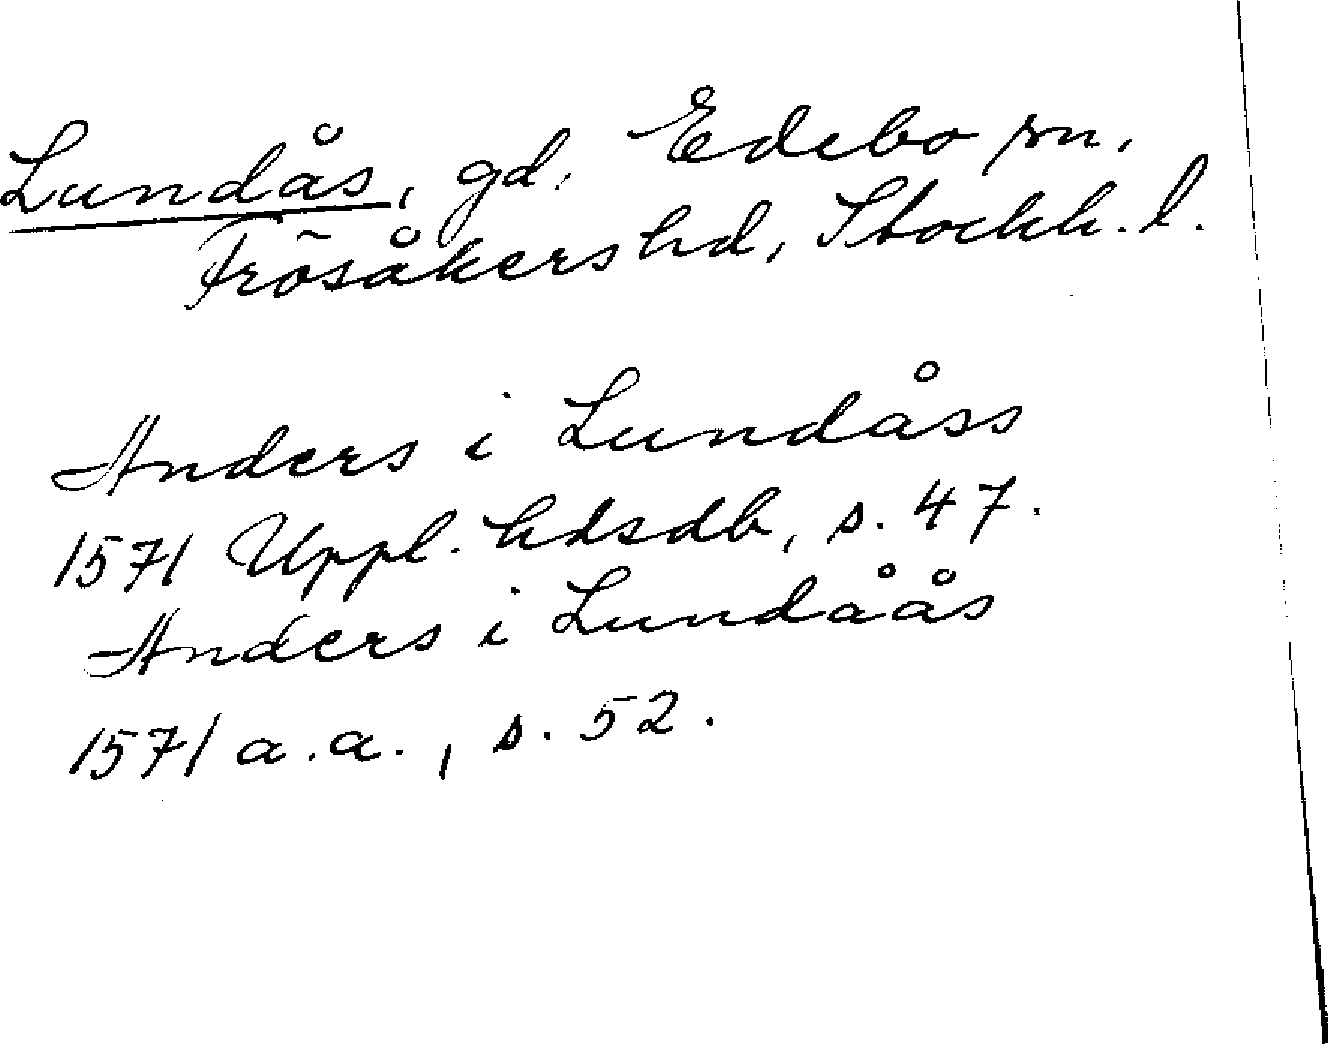 Lundås, gd, Edebo sn,
Frösåkers hd, Stockh. l.
Anders i Lundåss
1571 Uppl. hdsdb, s. 47.
Anders i Lundåås
1571 a.a., s. 52.